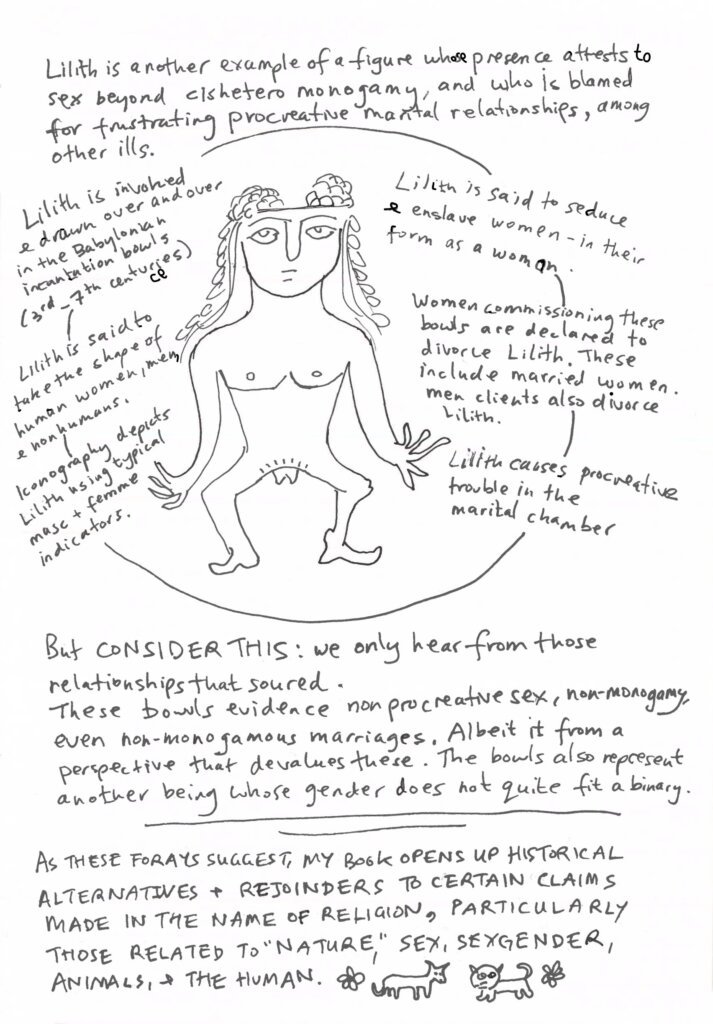 Lilith is another example of a figure whose presence attests to
sex beyond cishetero monogamy, and who is blamed
for frustrating procreative marital relationships, among
other ills.
Lilith is involved
& drawn over and over
in the Babylonian
incantation bowls
(3rd-7th centuries)
ce
Lilith is said to
take the shape of
human women, men
& nonhumans.
Iconography depicts
Lilith using typical
masc + femme
indicators.
Lilith is said to seduce
& enslave women - in their
form as a woman.
Women commissioning these
bowls are declared to
divorce Lilith. These
include married women.
men clients also divorce
Lilith.
Lilith causes procreative
trouble in the
marital chamber
But CONSIDER THIS: we only hear from those
relationships that soured.
These bowls evidence nonprocreative sex, non-monogamy,
even non-monogamous marriages. Albeit it from a
perspective that devalues these. The bowls also represent
another being whose gender does not quite fit a binary.
AS THESE FORAYS SUGGEST, MY BOOK OPENS UP HISTORICAL
ALTERNATIVES + REJOINDERS TO CERTAIN CLAIMS
MADE IN THE NAME OF RELIGION, PARTICULARLY
THOSE RELATED TO "NATURE," SEX, SEXGENDER,
ANIMALS, + THE HUMAN.